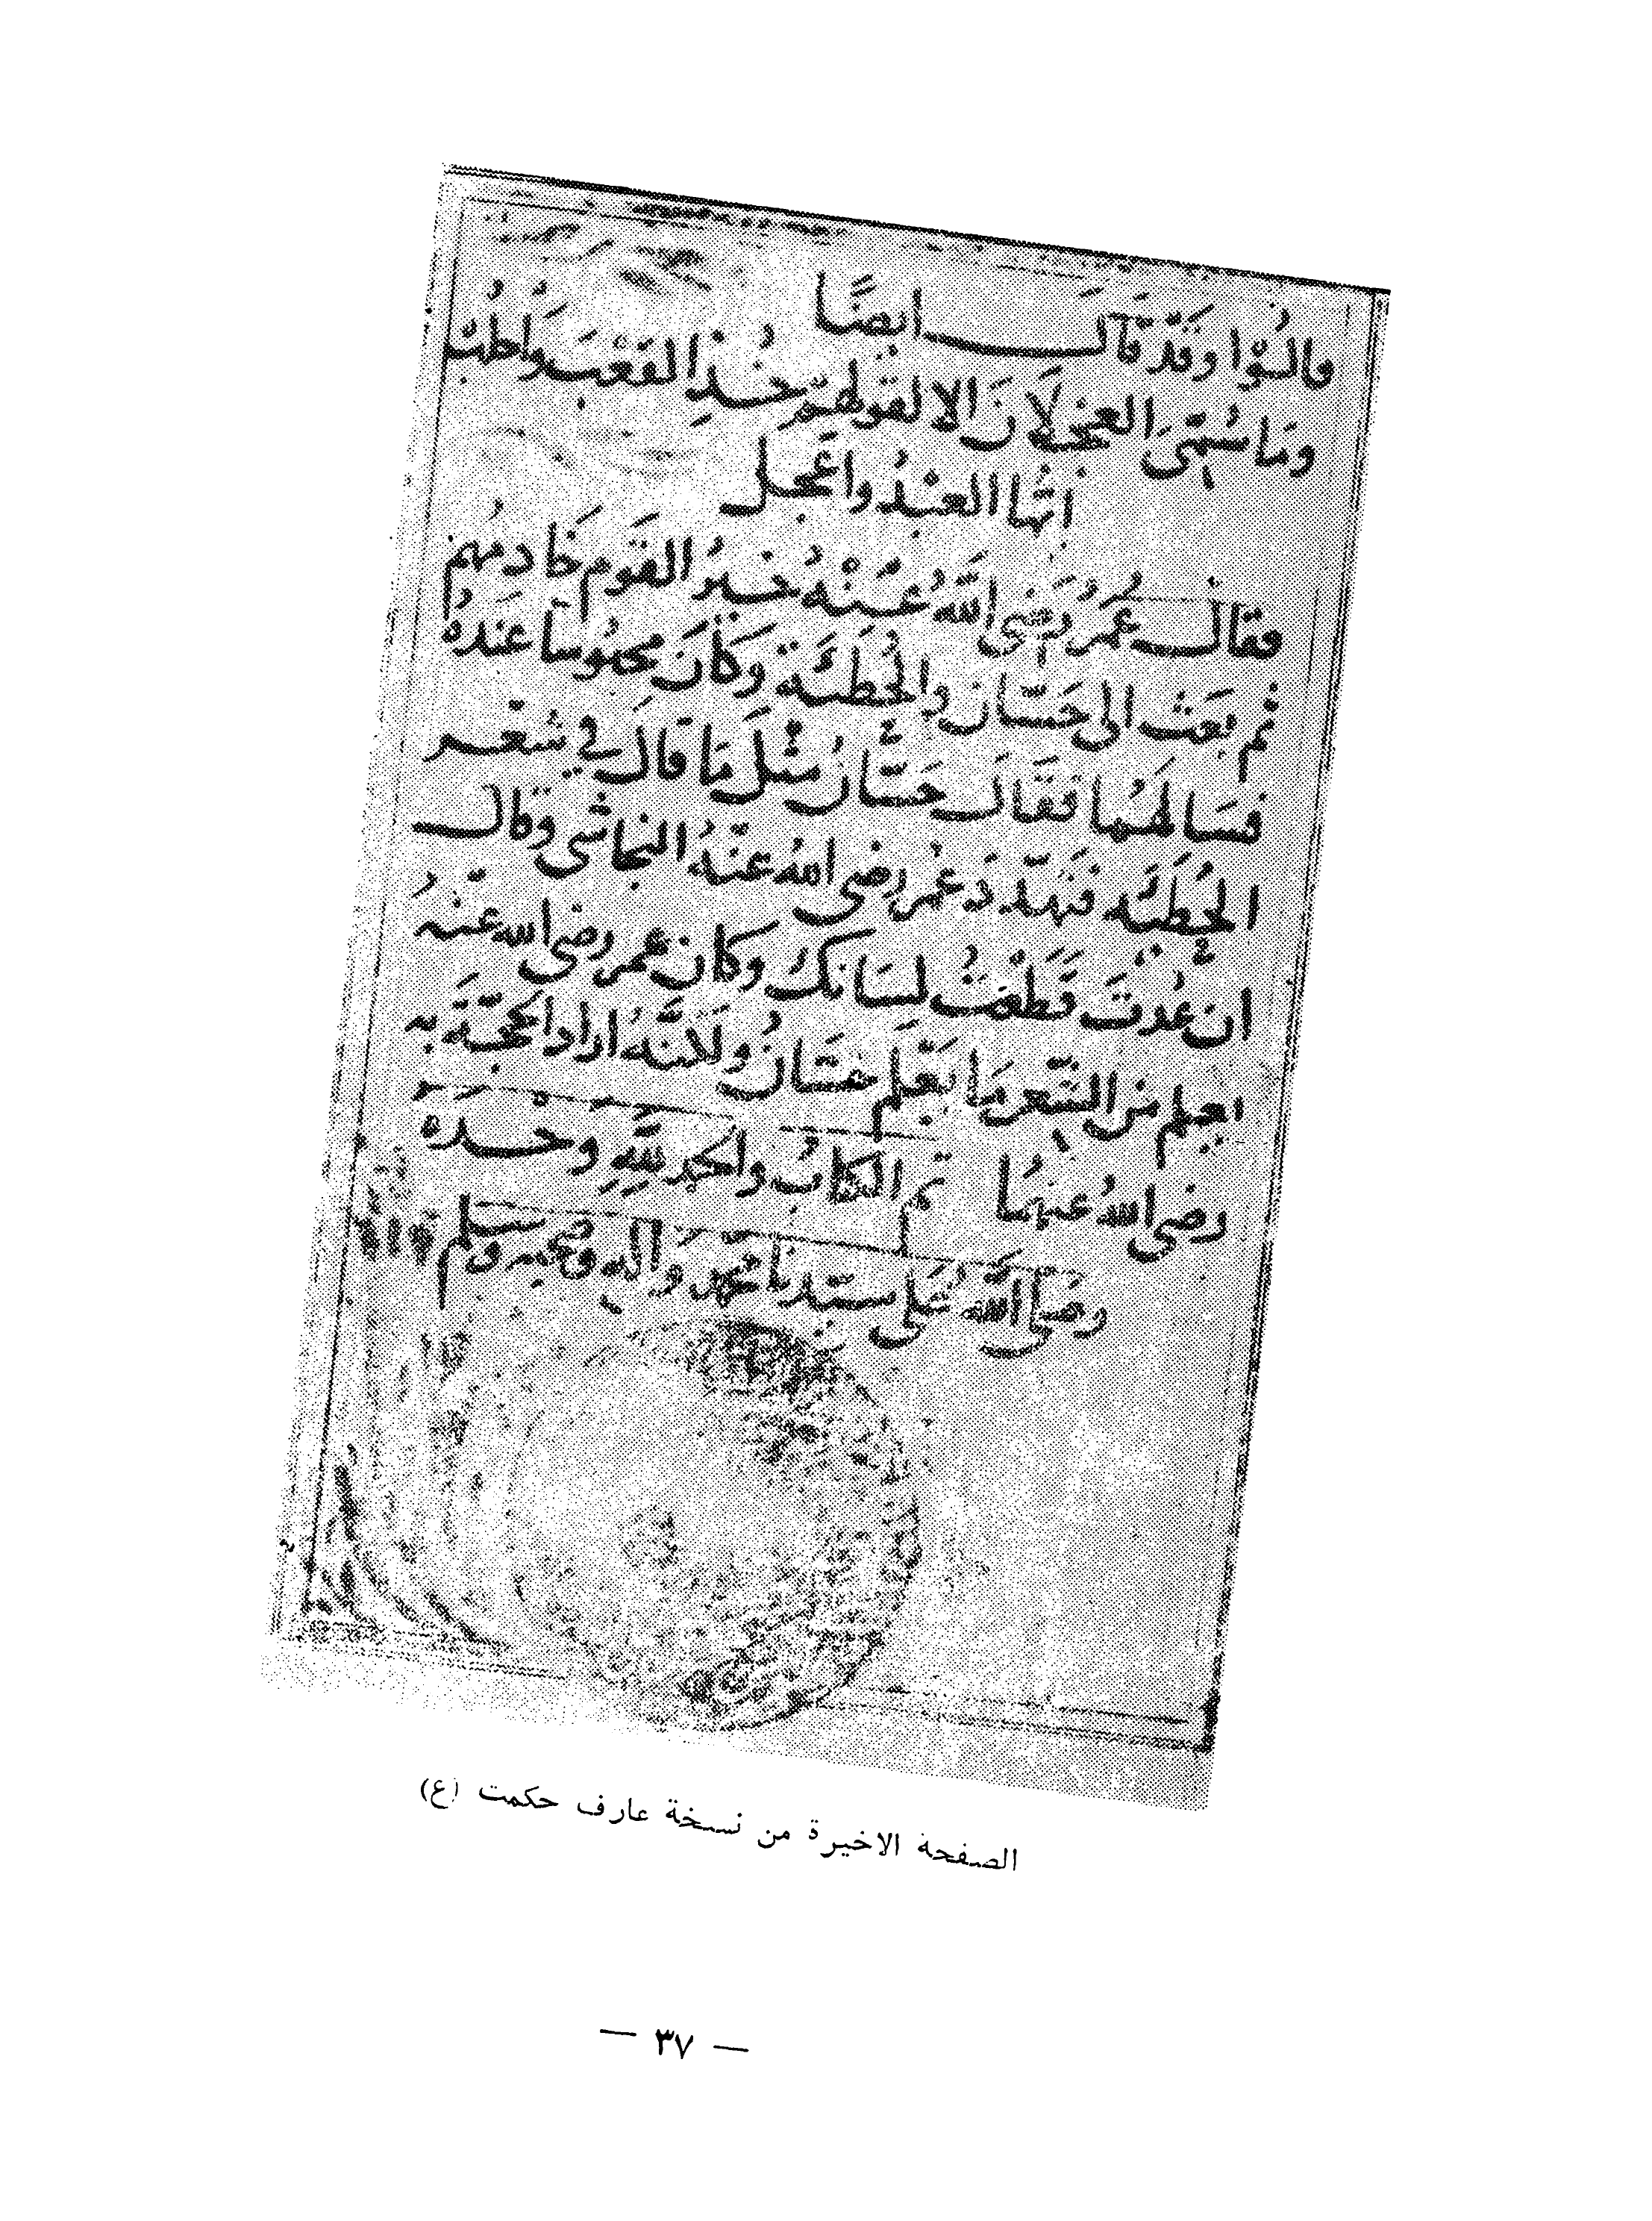 قالُوا وقَدْ قالَ ايضًا
ومَا سُمِّىَ العَجْلَانَ الا لقولهم خُذِ القَعْبَ واحْلُبْ
ايّها العبْدُ واعْجَلِ
فقالَ عُمَرُ رَضِى اللَّهُ عَنْهُ خَيرُ القَوْمِ خَادِمُهم
ثم بعَث الى حَسّان والحُطَيْئَة وَكَانَ محبُوسًا عَندهُ
فسَالهُما فقَالَ حَسّانُ مثْلَ مَا قَالَ في شعْر
الحُطَيْئَه فَهَدّدَ عُمر رضِى اللهُ عنْهُ النجاشى وَقال
ان عُدْتَ قَطَعْتُ لسَانك وَكان عمر رضى الله عنْهُ
يعلم مَن الشّعر مَا يَعْلَم حَسَّانُ ولكنَّهُ ارادَ الحُجّةَ به
رضى اللهُ عنهُما تم الكتابُ والحمد للَّهِ وَحْدَه
وصَلى اللَّه عَلى سيّدنَا محمد وَاله وصحبه وسلم
الصفحة الاخيرة من نسخة عارف حكمت (ع)
— ٣٧ —